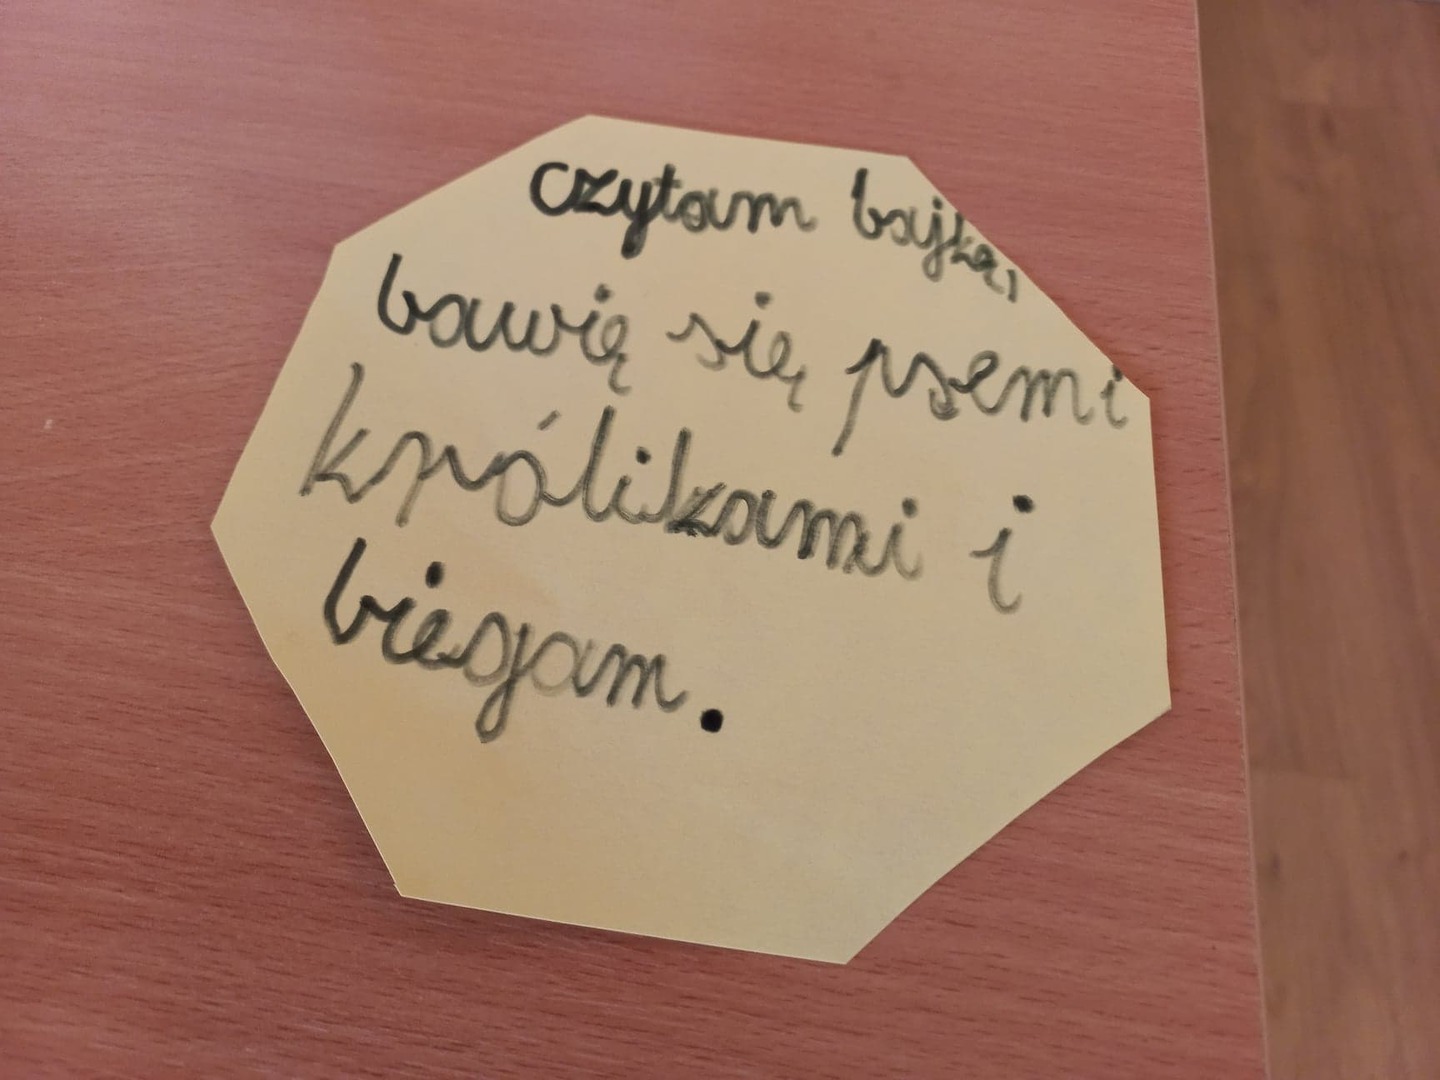 czytam bajkę,
bawię się psemi
królikami i
biegam.